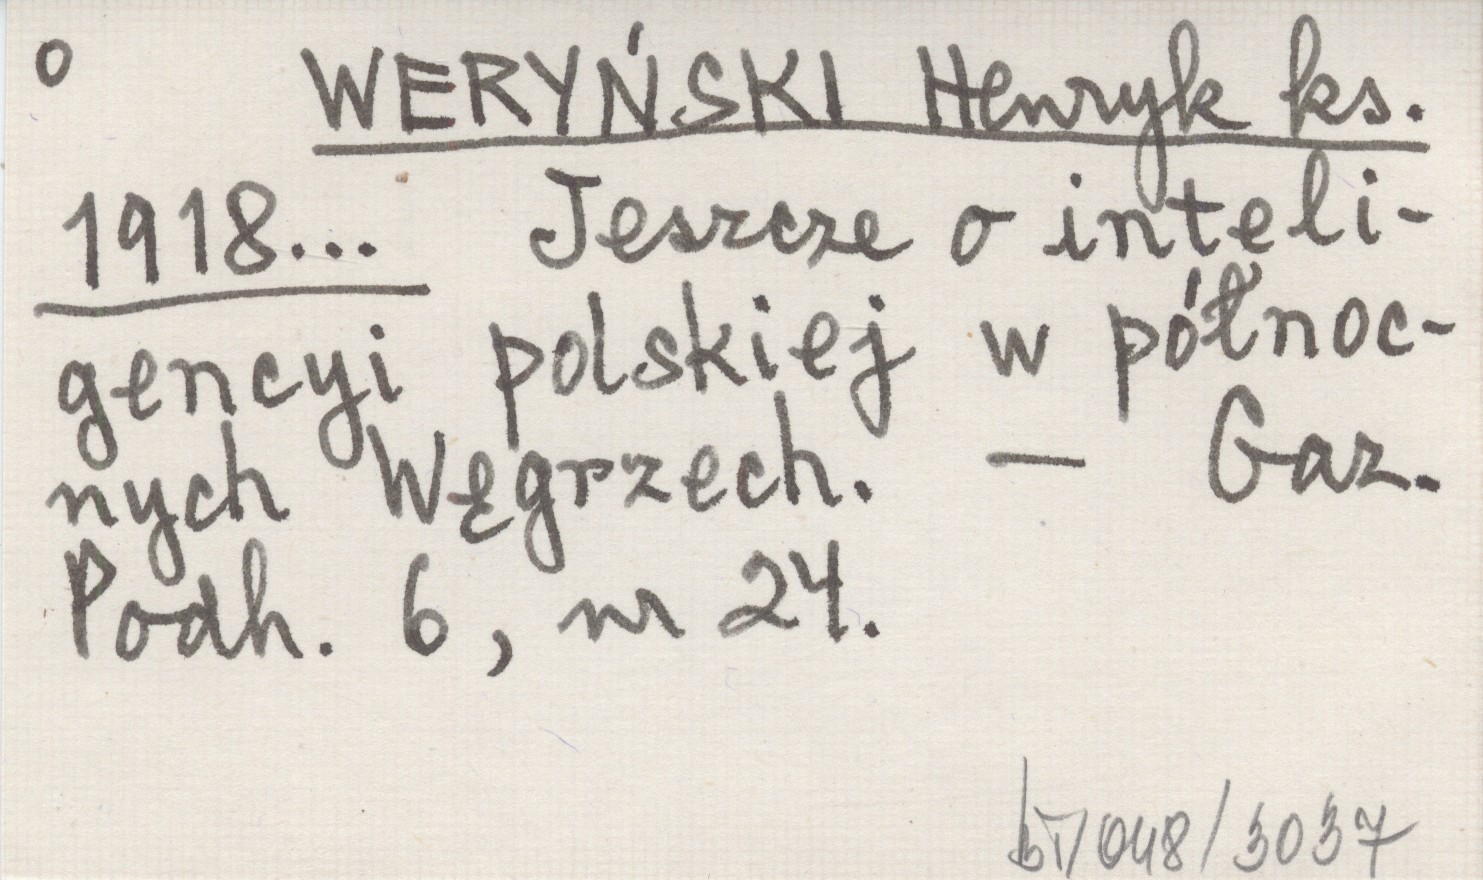 o WERYŃSKI Henryk ks.
1918... Jeszcze o inteli-
gencyi polskiej w północ-
nych Węgrzech. — Gaz.
Podh. 6, nr 24.
/048/3037